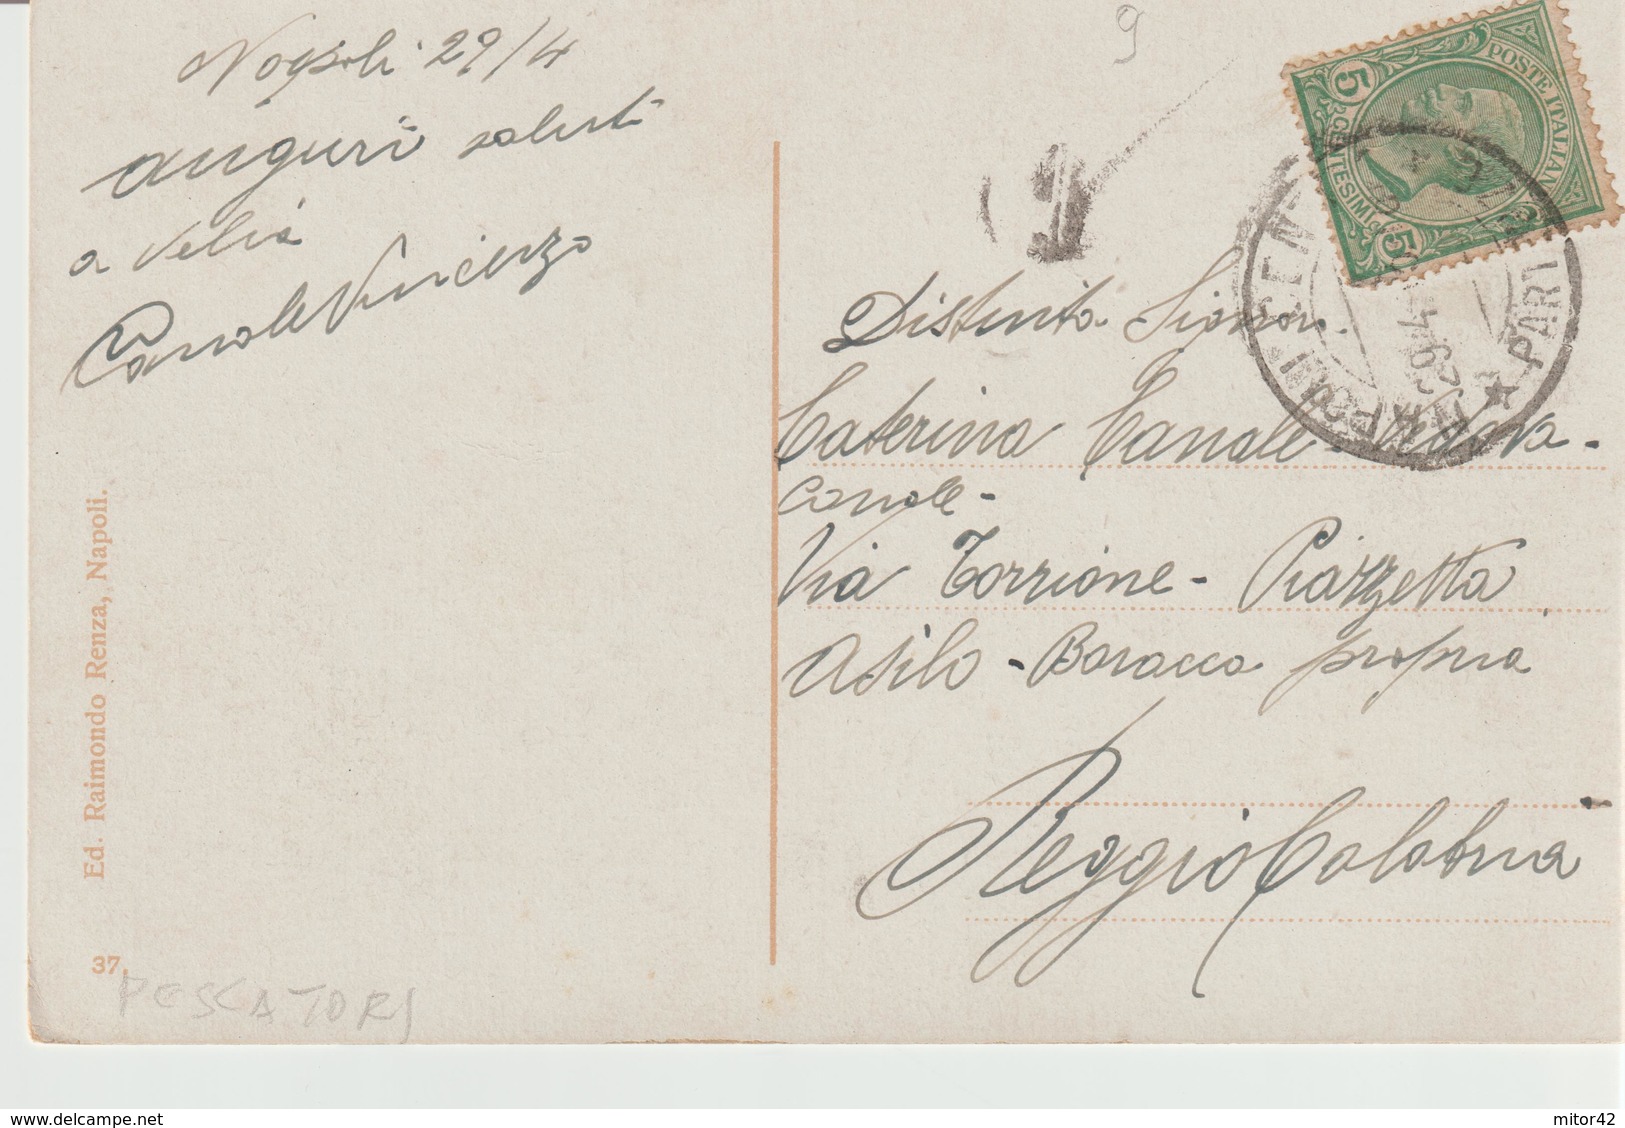 Napoli 29/4
auguri saluti
a Velia
Canale Vincenzo
Ed. Raimondo Renza, Napoli.
37.
PESCATORI
9
POSTE ITALIANE
CENTESIMI
5
5
NAPOLI
CENTRO
PART
29.4
Distinta Signora
Caterina Canale Vedova -
Canale -
Via Torrione - Piazzetta
Asilo - Baracca propria
Reggio Calabria
delcampe.net
mitor42